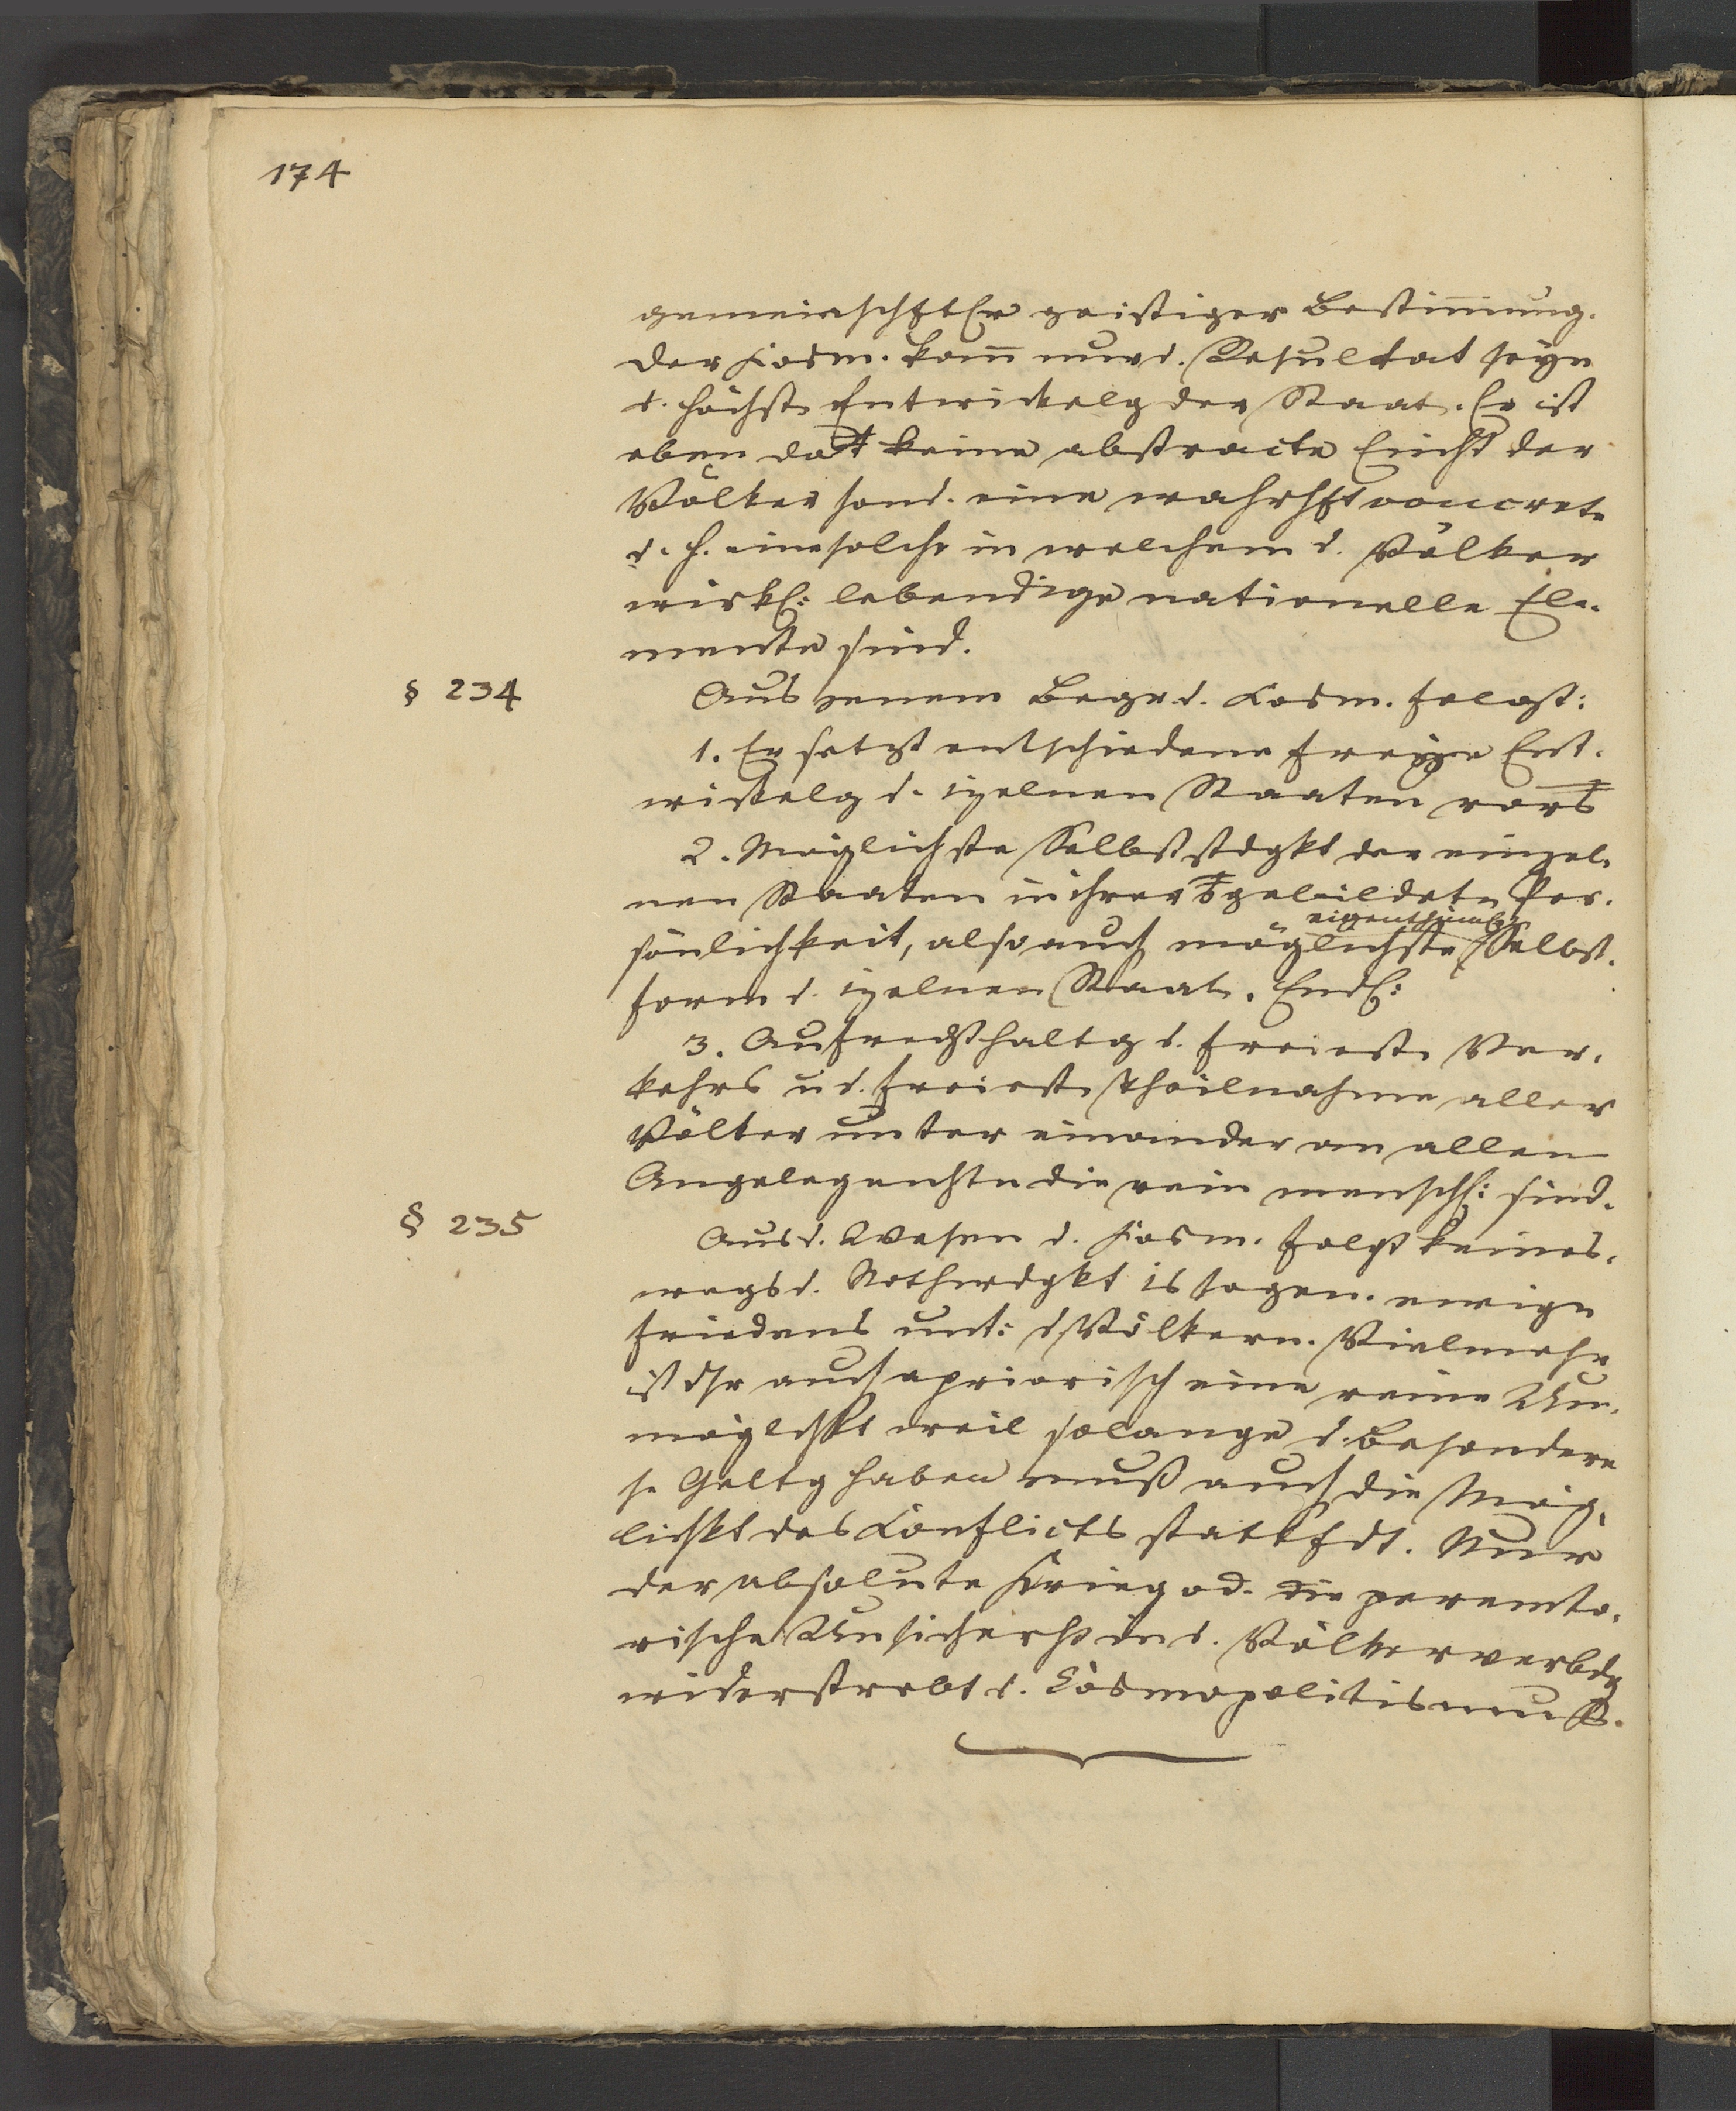 174
gemeinschftler geistiger Bestim̄ung.
Der Kosm. kan̄ nur d. Resultat seyn
d. höchstn Entwickelg der Staatn. Er ist
eben daß keine abstracte Einht der
Völker sond. eine wahrhft concrete
d. h. eine solche in welchem d. Völker
wirkl: lebendige nationelle Ele-
mente sind.
§ 234
Aus jenem Begr. d. Kosm. folgt:
1. Er setzt entschiedene freye Ent-
wickelg d. izelnen Staaten vors
2. Möglichste Selbststdgkt der einzel-
nen Staaten in ihrer gebildetn Per-
eigenthümle
sönlichkeit, also auch möglichste Selbst-
form d. izelnen Staatn. Endl:
3. Aufrechthaltg d. freiestn Ver-
kehrs u d. freiestn Theilnahme aller
Völker unter einander an allen
Angelegenhtn die rein menschl: sind.
§ 235
Aus d. Wesen d. Kosm. folgt keines-
wegs d. Nothwdgkt is sogen. ewign
Friedens unt: d Völkern. Vielmehr
ist dsr auch apriorisch eine reine Un-
möglichkt weil solange d. Besondere
se Geltg haben muß auch die Mög-
lichkt des Conflicts stattfdt. Nur
der absolute Krieg od. die peremto-
rische Unsicherht in d. Völkerverbdg
widerstrebt d. Cosmopolitismuß.